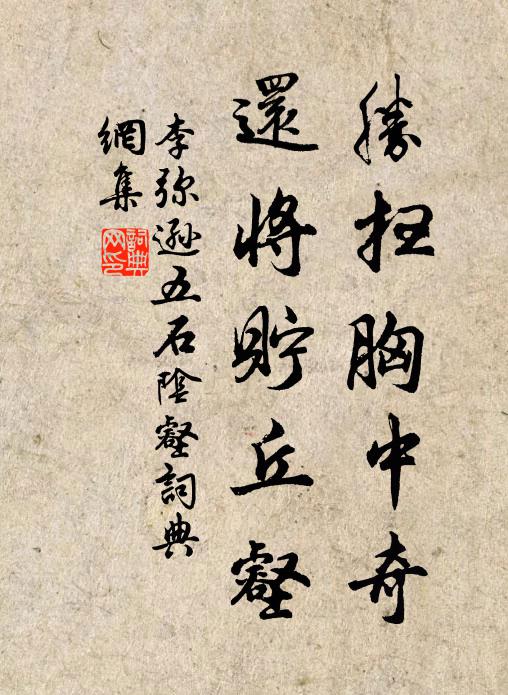 勝概胸中奇
還將貯丘壑
李弥遜五石陰壑詞典
網集
詞典網印